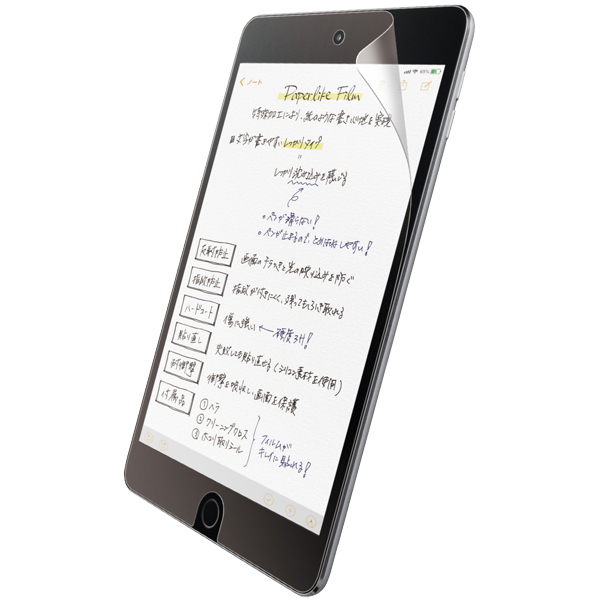 ノート
Paperlike Film
特殊加工により、紙のような書き心地を実現
文字が書きやすいしっかりタイプ
しっかり沈み込みを感じる
ペンが滑らない!
ペンが止まるので、とめはねしやすい!
反射防止 画面のテラつきと光の映り込みを防ぐ
指紋防止 指紋が付きにくく、残ってもふき取れる
ハードコート 傷に強い ← 硬度3H!
貼り直し 失敗しても貼り直せる(シリコン素材を使用)
耐衝撃 衝撃を吸収し画面を保護
付属品 ①ヘラ
②クリーニングクロス
③ホコリ取りシール
フィルムが
キレイに貼れる!